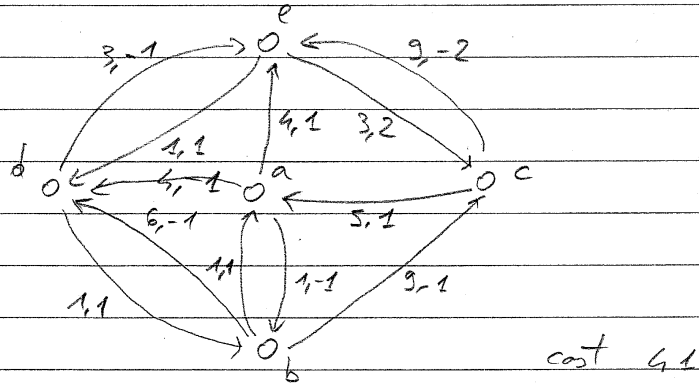 e
3,-1
9,-2
4,1
3,2
1,1
d
a
c
4,-1
6,-1
5,1
1,1
1,-1
9,-1
1,1
b
cost 41